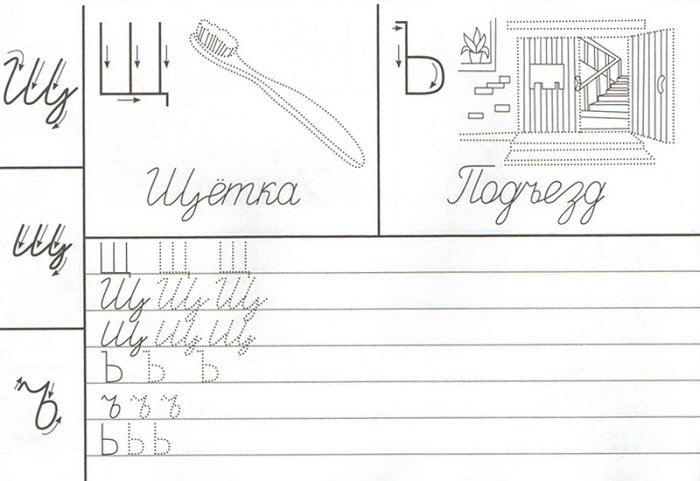 Щ
Щ
Щётка
Ъ
Подъезд
щ
ъ
Щ Щ Щ
Щ Щ Щ
щ щ щ
Ъ Ъ Ъ
ъ ъ ъ
Ъ Ъ Ъ